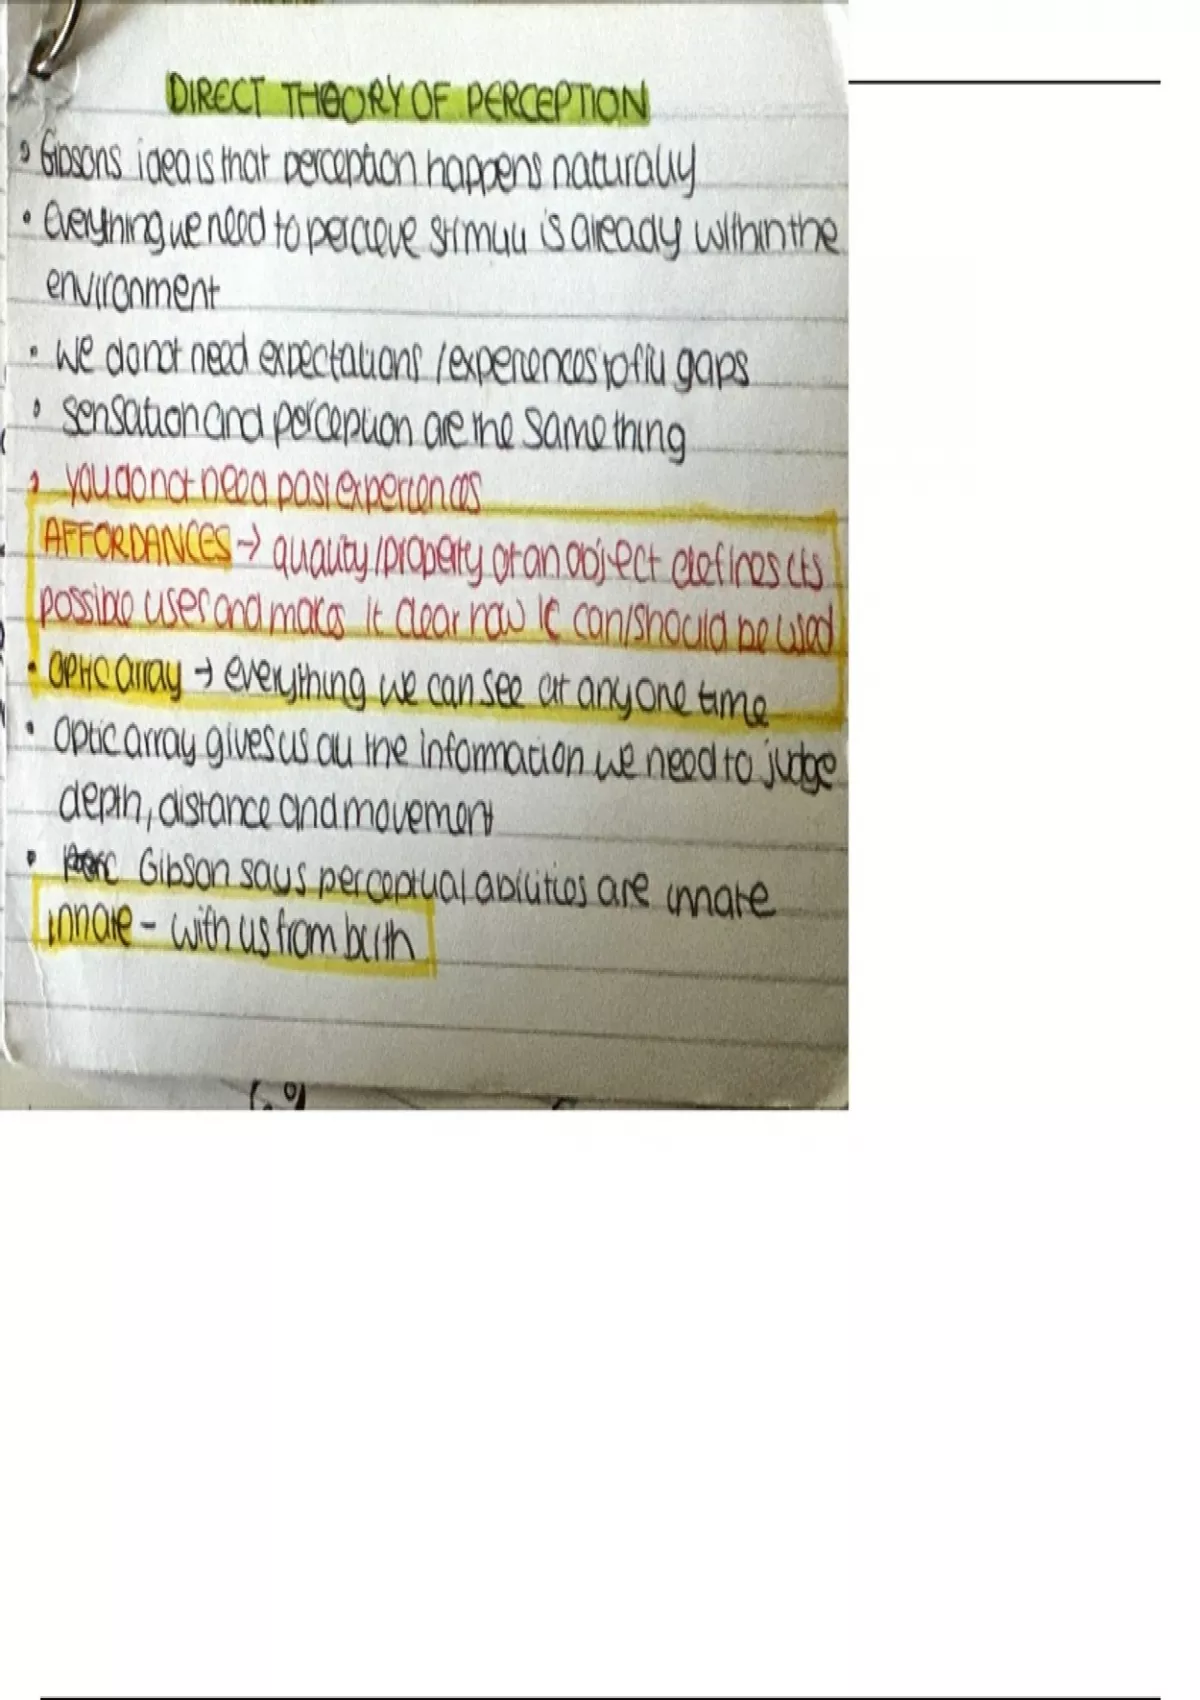 DIRECT THEORY OF PERCEPTION
• Gibsons idea is that perception happens naturally
• Everything we need to percieve stimuli is already within the
environment
• We do not need expectations / experiences to fill gaps
• Sensation and perception are the same thing
• you do not need past experiences
AFFORDANCES → quality/property of an object defines its
possible uses and makes it clear how it can/should be used
• OPTIC array → everything we can see at any one time
• Optic array gives us all the information we need to judge
depth, distance and movement
• Gibson says perceptual abilities are innate
innate - with us from birth